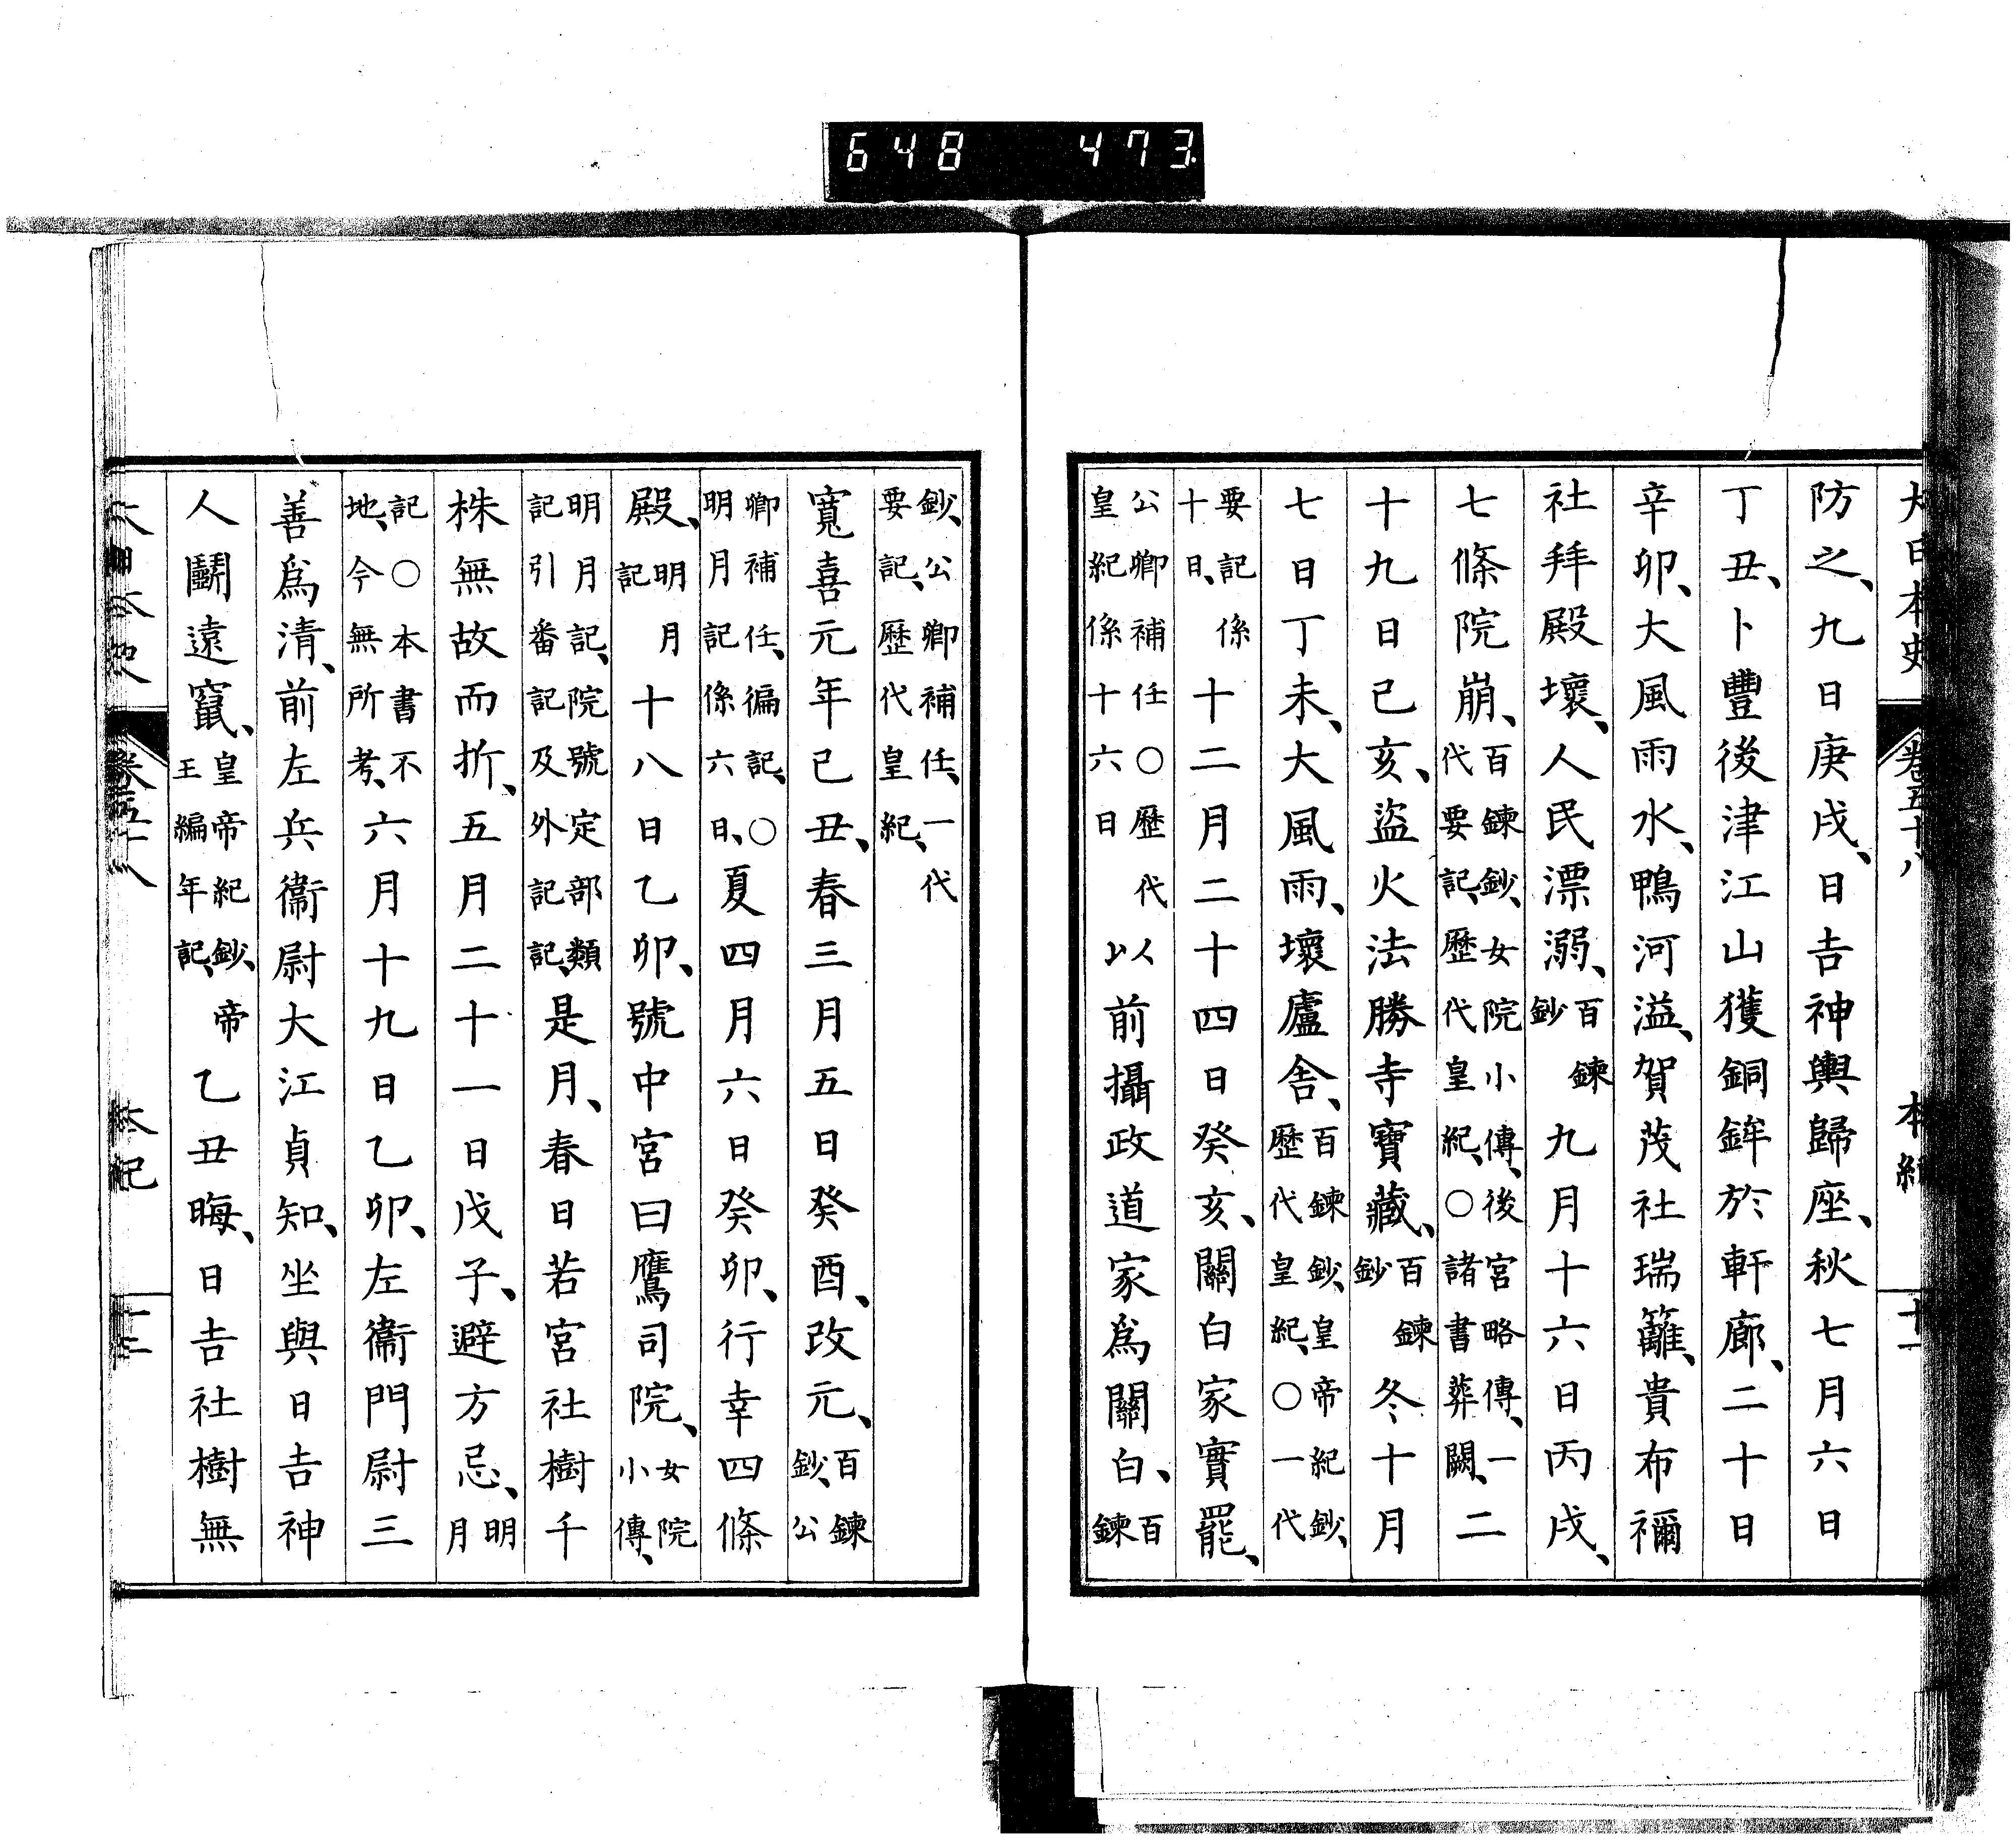 648 473
大日本史 卷五十八 本紀 十二
防之、九日庚戌、日吉神輿歸座、秋七月六日
丁丑、卜豐後津江山獲銅鉾於軒廊、二十日
辛卯、大風雨水、鴨河溢、賀茂社瑞籬、貴布禰
社拜殿壞、人民漂溺、百鍊鈔九月十六日丙戌、
七條院崩、百鍊鈔、女院小傳、後宮略傳、一代要記、歷代皇紀、○諸書葬闕、二
十九日己亥、盜火法勝寺寶藏、百鍊鈔冬十月
七日丁未、大風雨、壞廬舍、百鍊鈔、皇帝紀鈔、歷代皇紀、○一代
要記係十日、十二月二十四日癸亥、關白家實罷、
公卿補任○歷代皇紀係十六日以前攝政道家爲關白、百鍊
鈔、公卿補任、一代要記、歷代皇紀、
寬喜元年己丑、春三月五日癸酉、改元、百鍊鈔、公
卿補任、徧記、○明月記係六日、夏四月六日癸卯、行幸四條
殿、明月記十八日乙卯、號中宮曰鷹司院、女院小傳、
明月記、院號定部類記引番記及外記記、是月、春日若宮社樹千
株無故而折、五月二十一日戊子、避方忌、明月
記○本書不地、今無所考、六月十九日乙卯、左衞門尉三
善爲清、前左兵衞尉大江貞知、坐與日吉神
人鬭遠竄、皇帝紀鈔、王編年記、帝乙丑晦、日吉社樹無
本紀